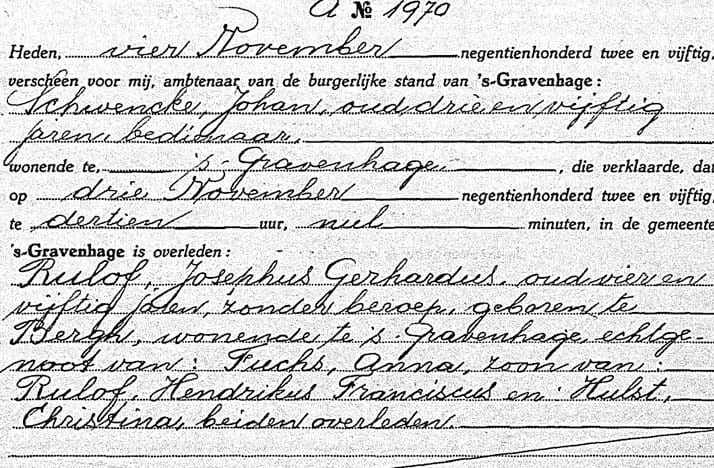 A № 1970
Heden, vier November negentienhonderd twee en vijftig,
verscheen voor mij, ambtenaar van de burgerlijke stand van 's-Gravenhage:
Schwencke, Johan, oud drie en vijftig
jaren, bedienaar,
wonende te, 's-Gravenhage, die verklaarde, dat
op drie November negentienhonderd twee en vijftig,
te dertien uur, nul minuten, in de gemeente
's-Gravenhage is overleden:
Rulof, Josephus Gerhardus, oud vier en
vijftig jaren, zonder beroep, geboren te
Bergh, wonende te 's Gravenhage, echtge-
noot van: Fuchs, Anna, zoon van:
Rulof, Hendrikus Franciscus en Hulst,
Christina, beiden overleden.